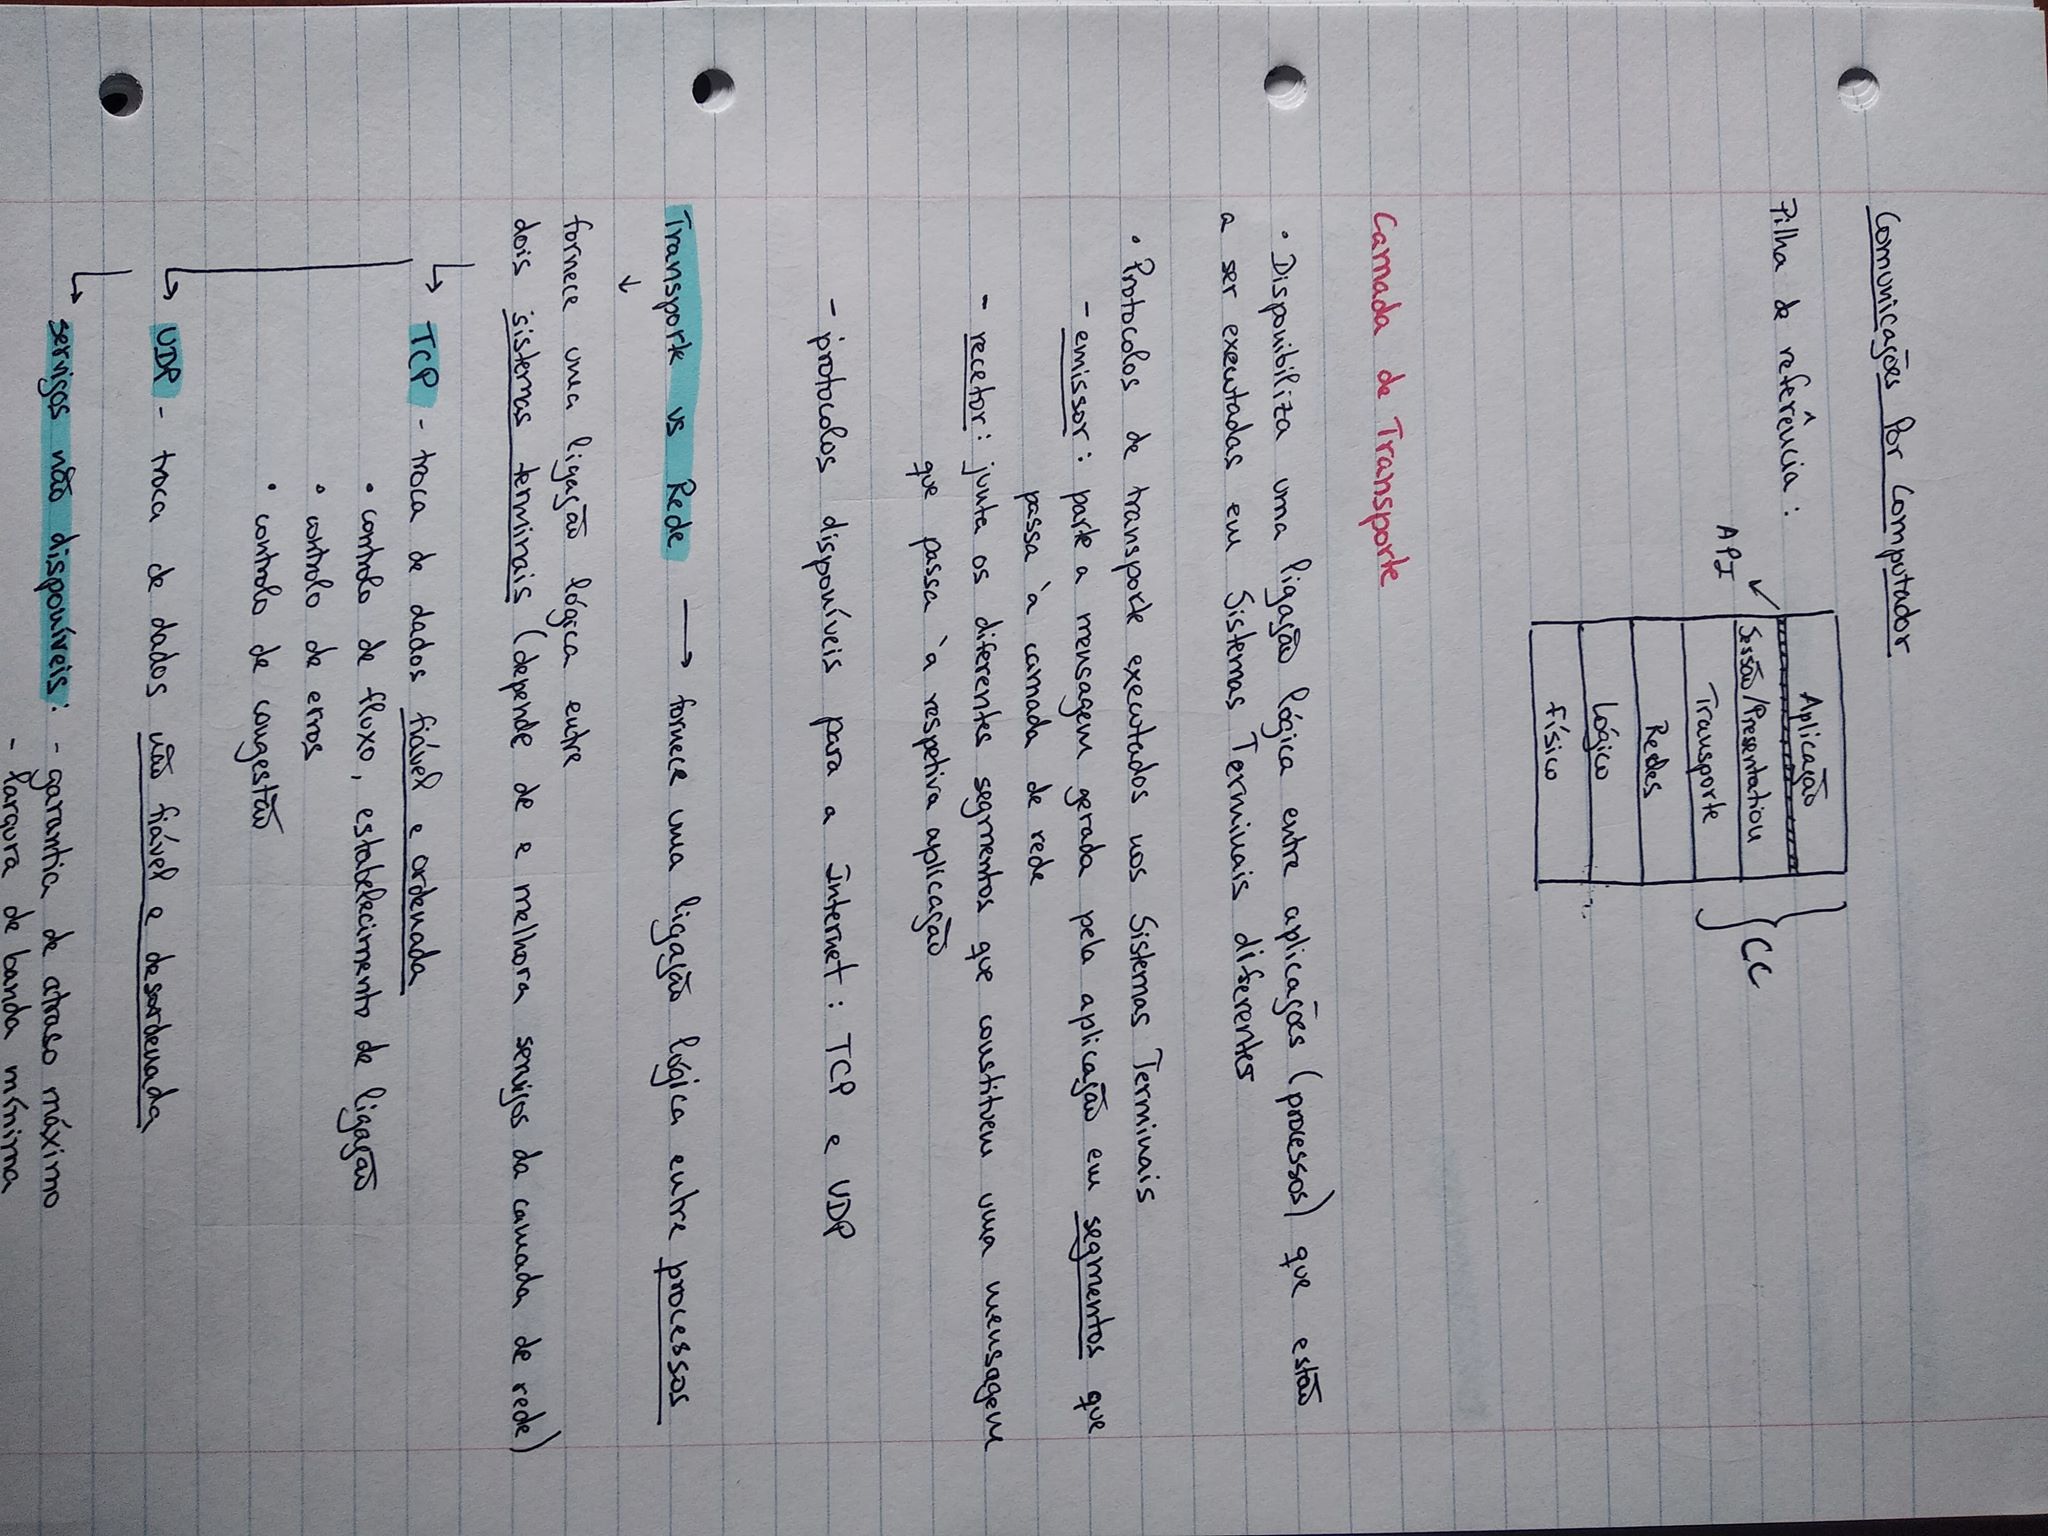 Comunicações Por Computador
Pilha de referência :
Aplicação
API
Sessão/Presentation
Transporte
CC
Redes
Lógico
Físico
Camada de Transporte
• Disponibiliza uma ligação lógica entre aplicações (processos) que estão
a ser executadas em Sistemas Terminais diferentes
• Protocolos de transporte executados nos Sistemas Terminais
- emissor : parte a mensagem gerada pela aplicação em segmentos que
passa à camada de rede
- recetor : junta os diferentes segmentos que constituem uma mensagem
que passa à respetiva aplicação
- protocolos disponíveis para a Internet : TCP e UDP
Transporte vs Rede → fornece uma ligação lógica entre processos
↓
fornece uma ligação lógica entre
dois sistemas terminais (depende de e melhora serviços da camada de rede)
↳ TCP - troca de dados fiável e ordenada
• controlo de fluxo, estabelecimento de ligação
• controlo de erros
• controlo de congestão
↳ UDP - troca de dados não fiável e desordenada
↳ serviços não disponíveis : - garantia de atraso máximo
- largura de banda mínima